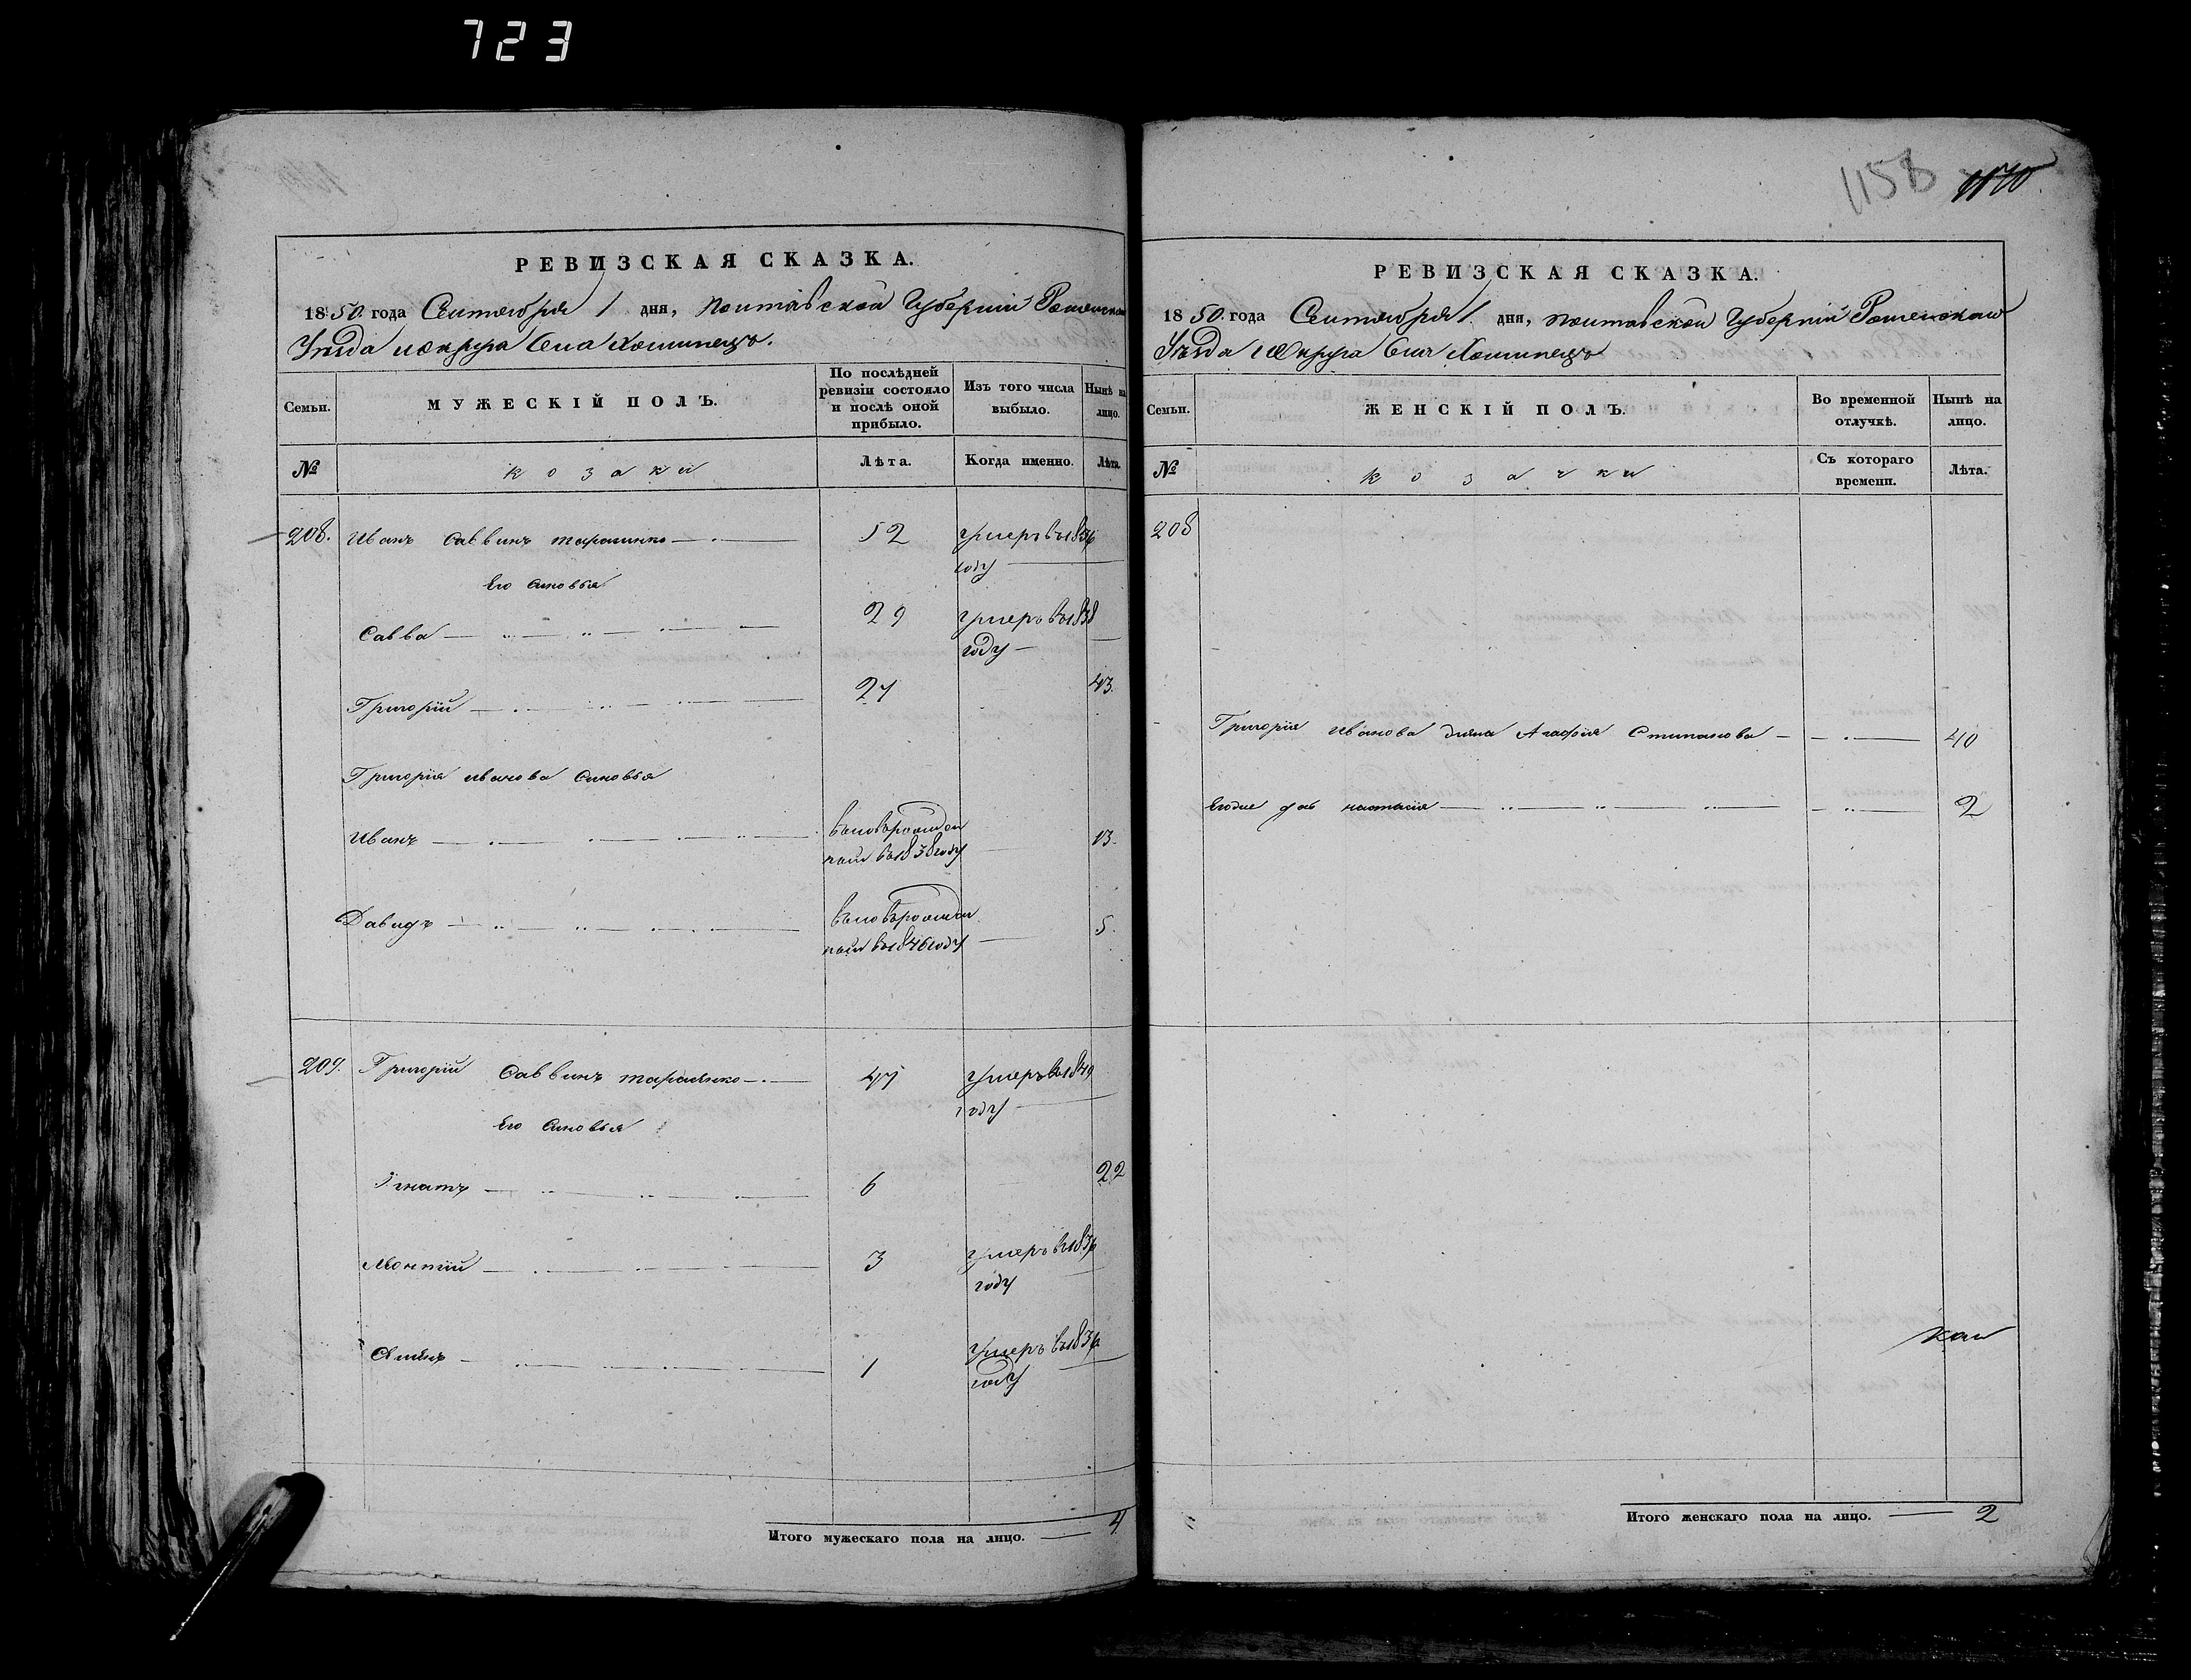 723
РЕВИЗСКАЯ СКАЗКА.
1850 года Сентября 1 дня, Полтавской Губерніи Роменскаго
Уѣзда и округа Села Хоминецъ.
Семьи.
МУЖЕСКІЙ ПОЛЪ.
По послѣдней ревизіи состояло и послѣ оной прибыло.
Изъ того числа выбыло.
Нынѣ на лицо.
№
козаки
Лѣта.
Когда именно.
Лѣта.
208. Иванъ Саввинъ 52 умеръ въ 1836
году
Его Сыновья
Савва 29 умеръ въ 1838
году
Григорій 27 43.
Григорія Иванова Сыновья
Иванъ вновърожден
ный въ 1838 году 13.
Давидъ вновърожден
ный въ 1846 году 5.
209. Григорій Саввинъ 47 умеръ въ 1849
году
Его Сыновья
Игнатъ 6 22
Леонтій 3 умеръ въ 1836
году
1 умеръ въ 1836
году
Итого мужескаго пола на лицо. 4
1158 1170
РЕВИЗСКАЯ СКАЗКА.
1850 года Сентября 1 дня, Полтавской Губерніи Роменскаго
Уѣзда и Округа Села Хоминецъ
Семьи.
ЖЕНСКІЙ ПОЛЪ.
Во временной отлучкѣ.
Нынѣ на лицо.
№
козачки
Съ котораго времени.
Лѣта.
208
Григорія Иванова жена Агафія Степанова 40
Егоже дочь настасія 2
Итого женскаго пола на лицо. 2